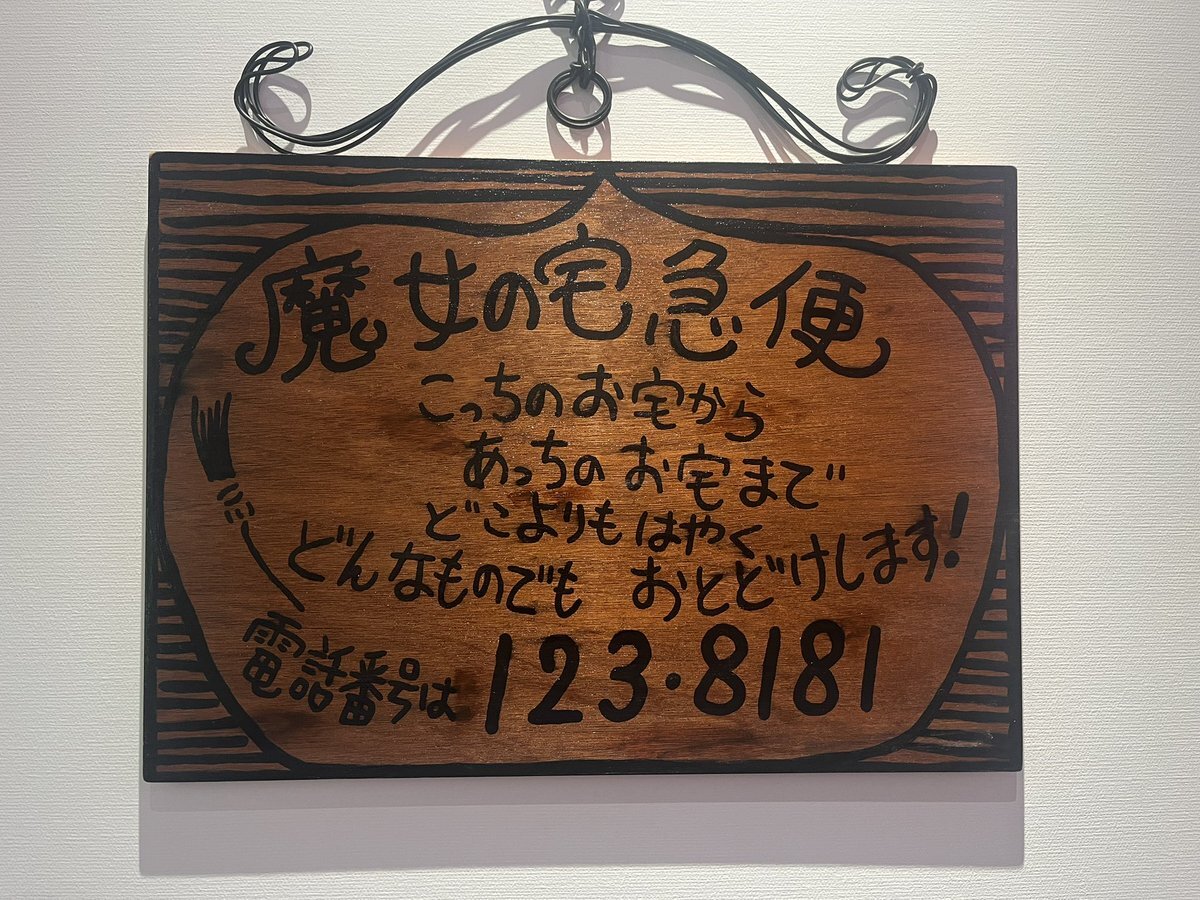 魔女の宅急便
こっちのお宅から
あっちのお宅まで
どこよりもはやく
どんなものでも おとどけします!
電話番号は 123・8181